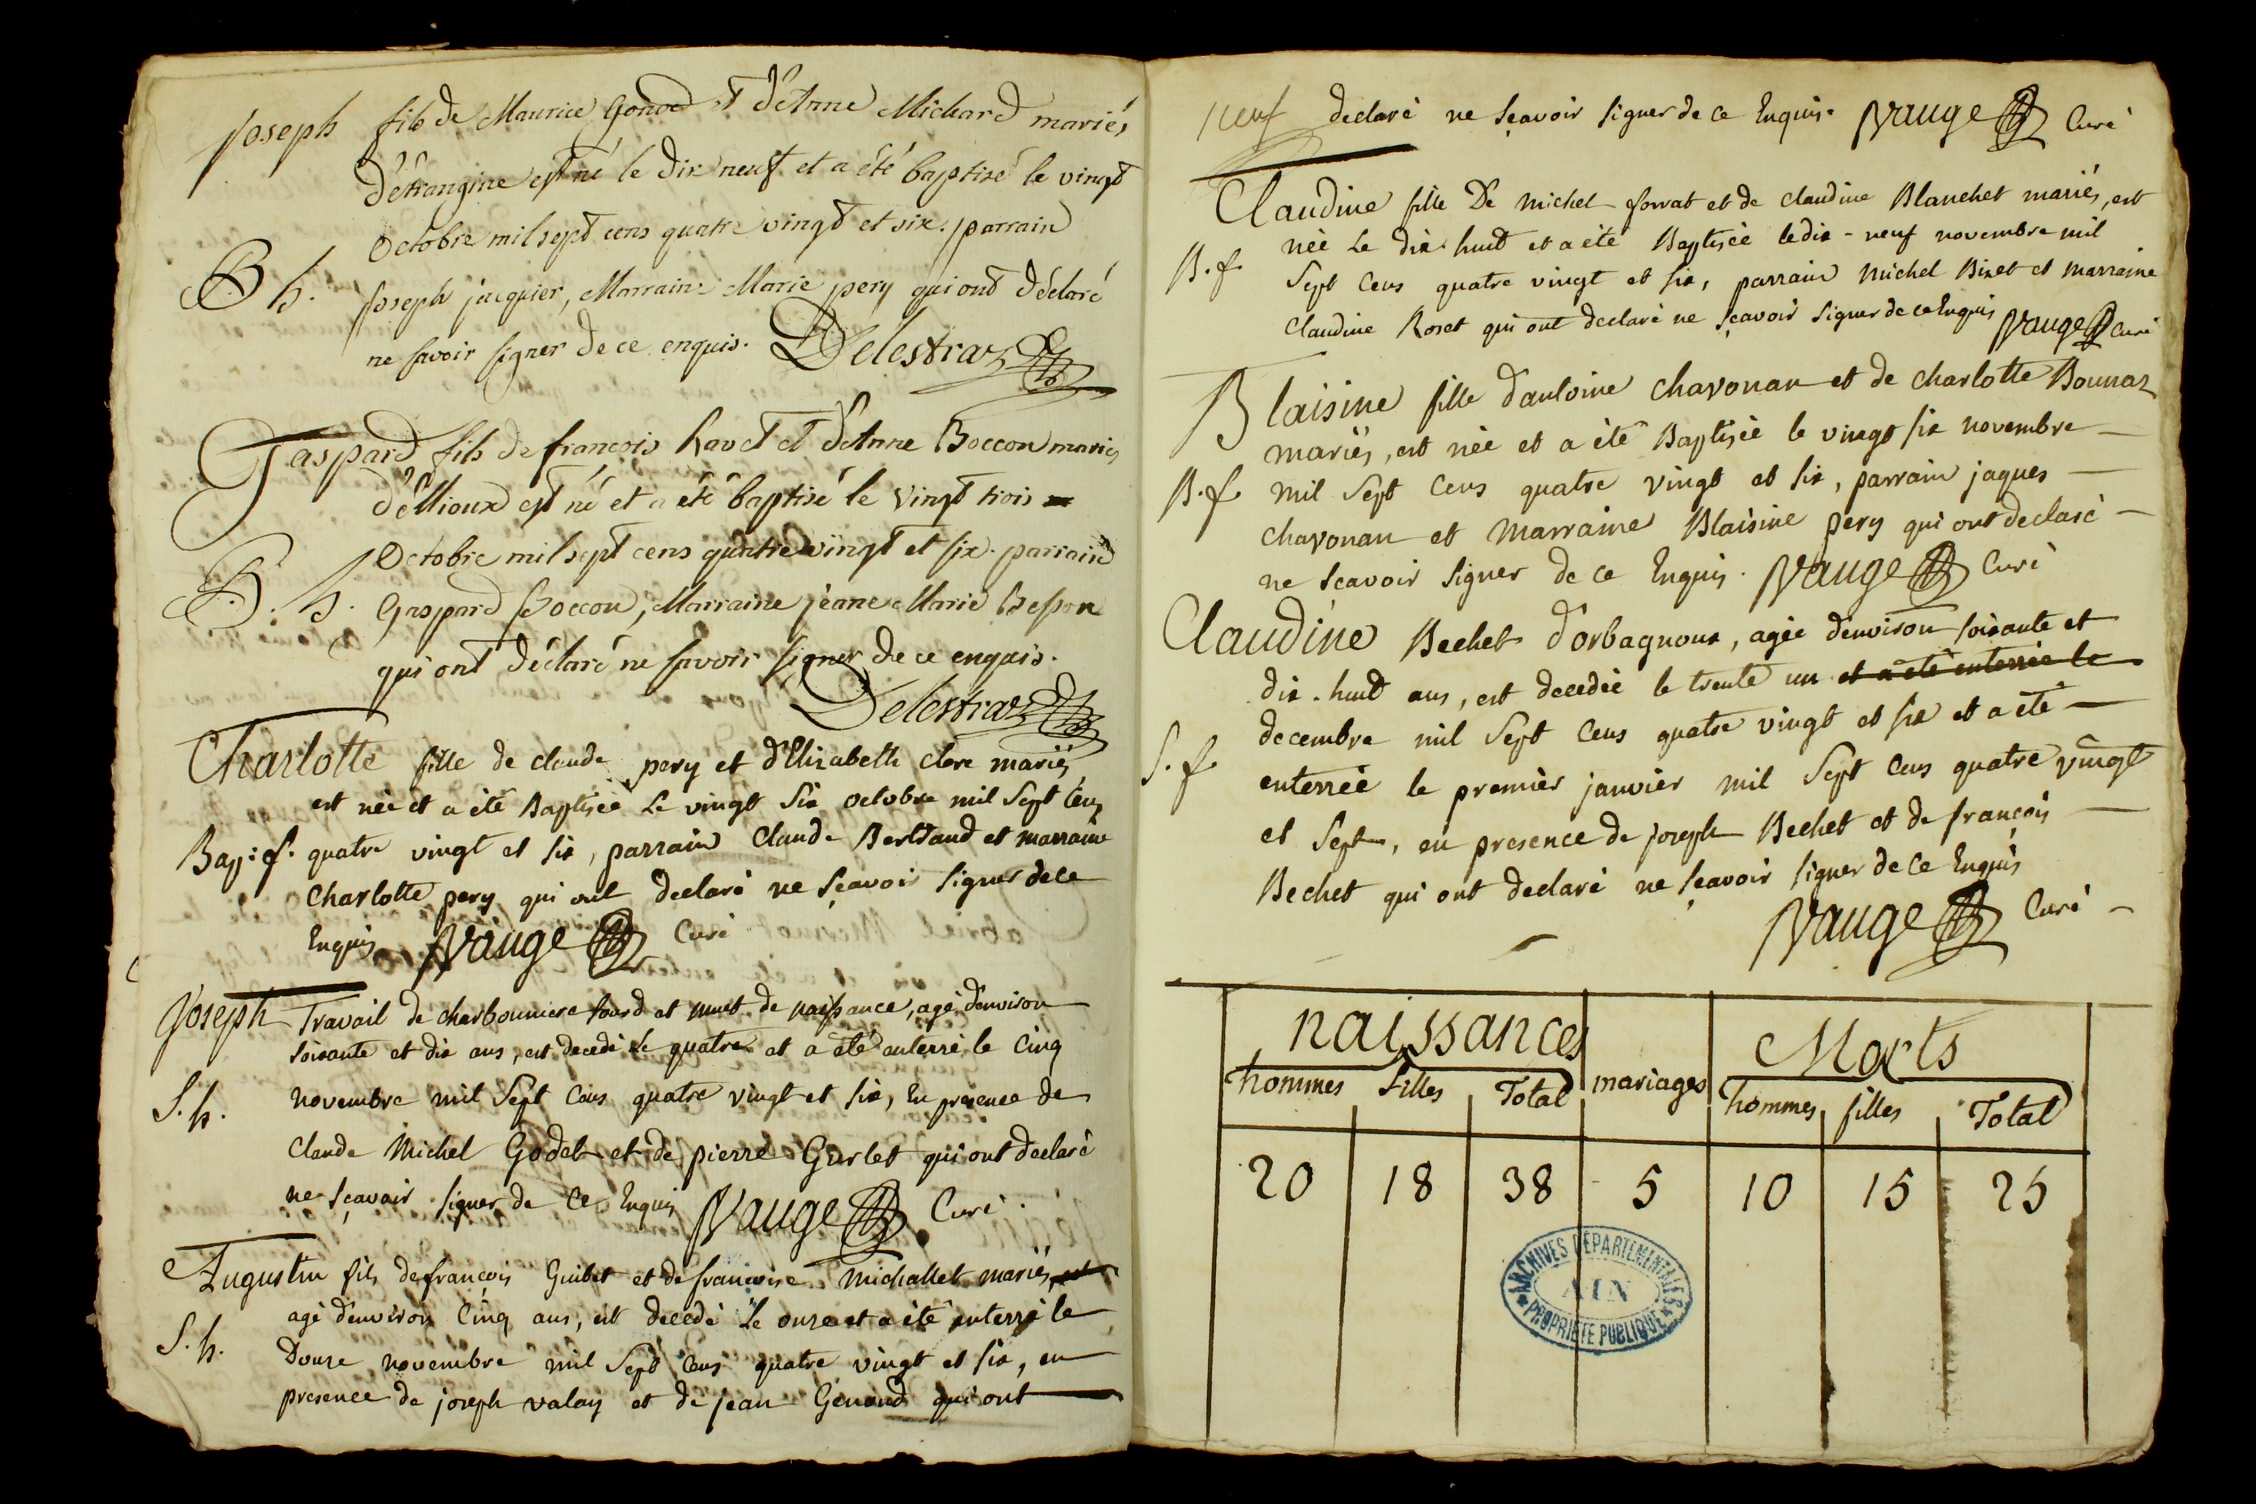 Joseph fils de Maurice Gonod et d'Anne Michard mariés
d'étrangine est né le dix neuf et a été baptisé le vingt
Octobre mil sept cens quatre vingt et six. parrain
B h. Joseph jacquier, Marraine Marie pery qui ont déclaré
ne savoir signer de ce enquis. Delestraz
Gaspard fils de françois Ravet et d'Anne Boccon mariés
d'Ellioux est né et a été baptisé le vingt trois
Octobre mil sept cens quatre vingt et six. parrain
B. h. Gaspard Boccon, Marraine jeane Marie Besson
qui ont déclaré ne savoir signer de ce enquis.
Delestraz
Charlotte fille de claude pery et d'Elizabeth clerc mariés
est née et a été Baptisée Le vingt Six octobre mil Sept Cens
Bap: f. quatre vingt et six, parrain Claude Bertrand et marraine
Charlotte pery qui ont declaré ne sçavoir signer de ce
Enquis Vauge Curé
Joseph Travail de charbonniere sourd et muet de naissance, agé d'environ
soixante et dix ans, est decedé Le quatre et a été enterré le Cinq
S. h. novembre mil Sept Cens quatre vingt et six, En presence de
Claude Michel Godet et de pierre Gurlet qui ont declaré
ne sçavoir signer de ce Enquis Vauge Curé.
Augustin fils de françois Guibet et de françoise Michallet mariés, est
agé d'environ Cinq ans, est decedé Le onze et a été enterré le
S. h. Douze novembre mil Sept Cens quatre vingt et six, en
presence de joseph valay et de jean Genand qui ont
neuf declaré ne sçavoir signer de ce Enquis. Vauge Curé
Claudine fille De michel forrat et de claudine Blanchet mariés, est
née Le dix huit et a été Baptisée le dix-neuf novembre mil
B. f. Sept Cens quatre vingt et six, parrain Michel Bizet et marraine
Claudine Roset qui ont declaré ne sçavoir signer de ce Enquis Vauge Curé
Blaisine fille d'antoine chavonan et de charlotte Bounaz
mariés, est née et a été Baptisée le vingt six novembre
B. f. mil Sept Cens quatre vingt et six, parrain jaques
chavonan et Marraine Blaisine pery qui ont declaré
ne sçavoir signer de ce Enquis. Vauge Curé
Claudine Bechet d'orbagnoux, agée d'environ soixante et
dix-huit ans, est decedée le trente un et a été enterrée le
decembre mil Sept Cens quatre vingt et six et a été
S. f. enterrée le premier janvier mil Sept Cens quatre vingt
et Sept, en presence de joseph Bechet et de françois
Bechet qui ont declaré ne sçavoir signer de ce Enquis
Vauge Curé
naissances Morts
hommes filles Total mariages hommes filles Total
20 18 38 5 10 15 25
ARCHIVES DÉPARTEMENTALES
AIN
PROPRIÉTÉ PUBLIQUE